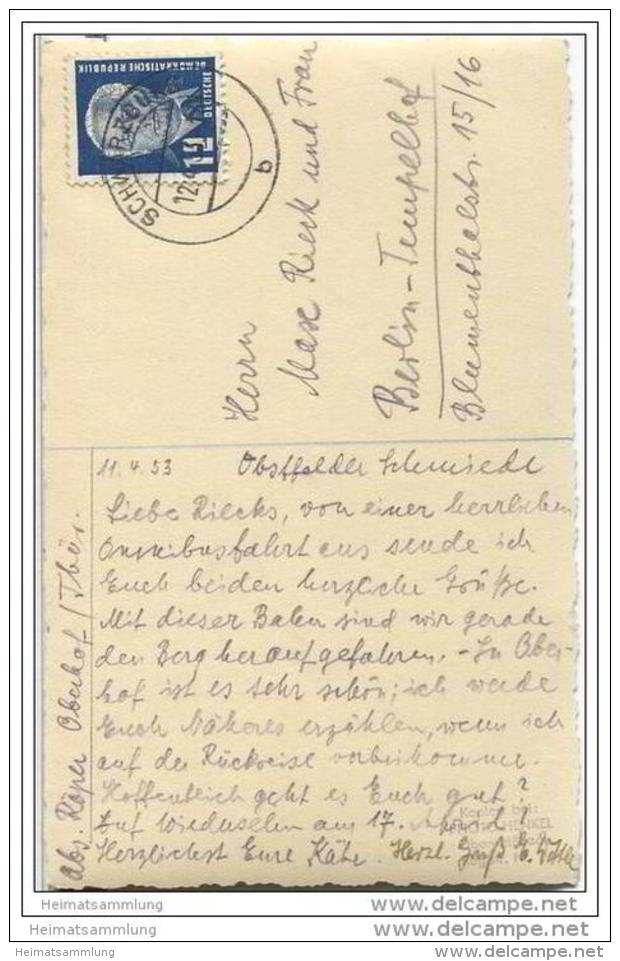 DEUTSCHE
DEMOKRATISCHE REPUBLIK
12
b
Herrn
Max Rieck und Frau
Berlin-Tempelhof
Blumenthalstr. 15/16
11.4.53 Obstfelder Schmiede
Liebe Riecks, von einer herrlichen
Omnibusfahrt aus sende ich
Euch beiden herzliche Grüße.
Mit dieser Bahn sind wir gerade
den Berg heraufgefahren. - In Ober-
hof ist es sehr schön; ich werde
Euch Näheres erzählen, wenn ich
auf der Rückreise vorbeikomme.
Hoffentlich geht es Euch gut?
Auf Wiedersehen am 17. April!
Herzlichst Eure Käte. Herzl. Gruß E.
Abs. Röper Oberhof / Thür.
Heimatsammlung www.delcampe.net
Heimatsammlung www.delcampe.net
Heimatsammlung www.delcampe.net